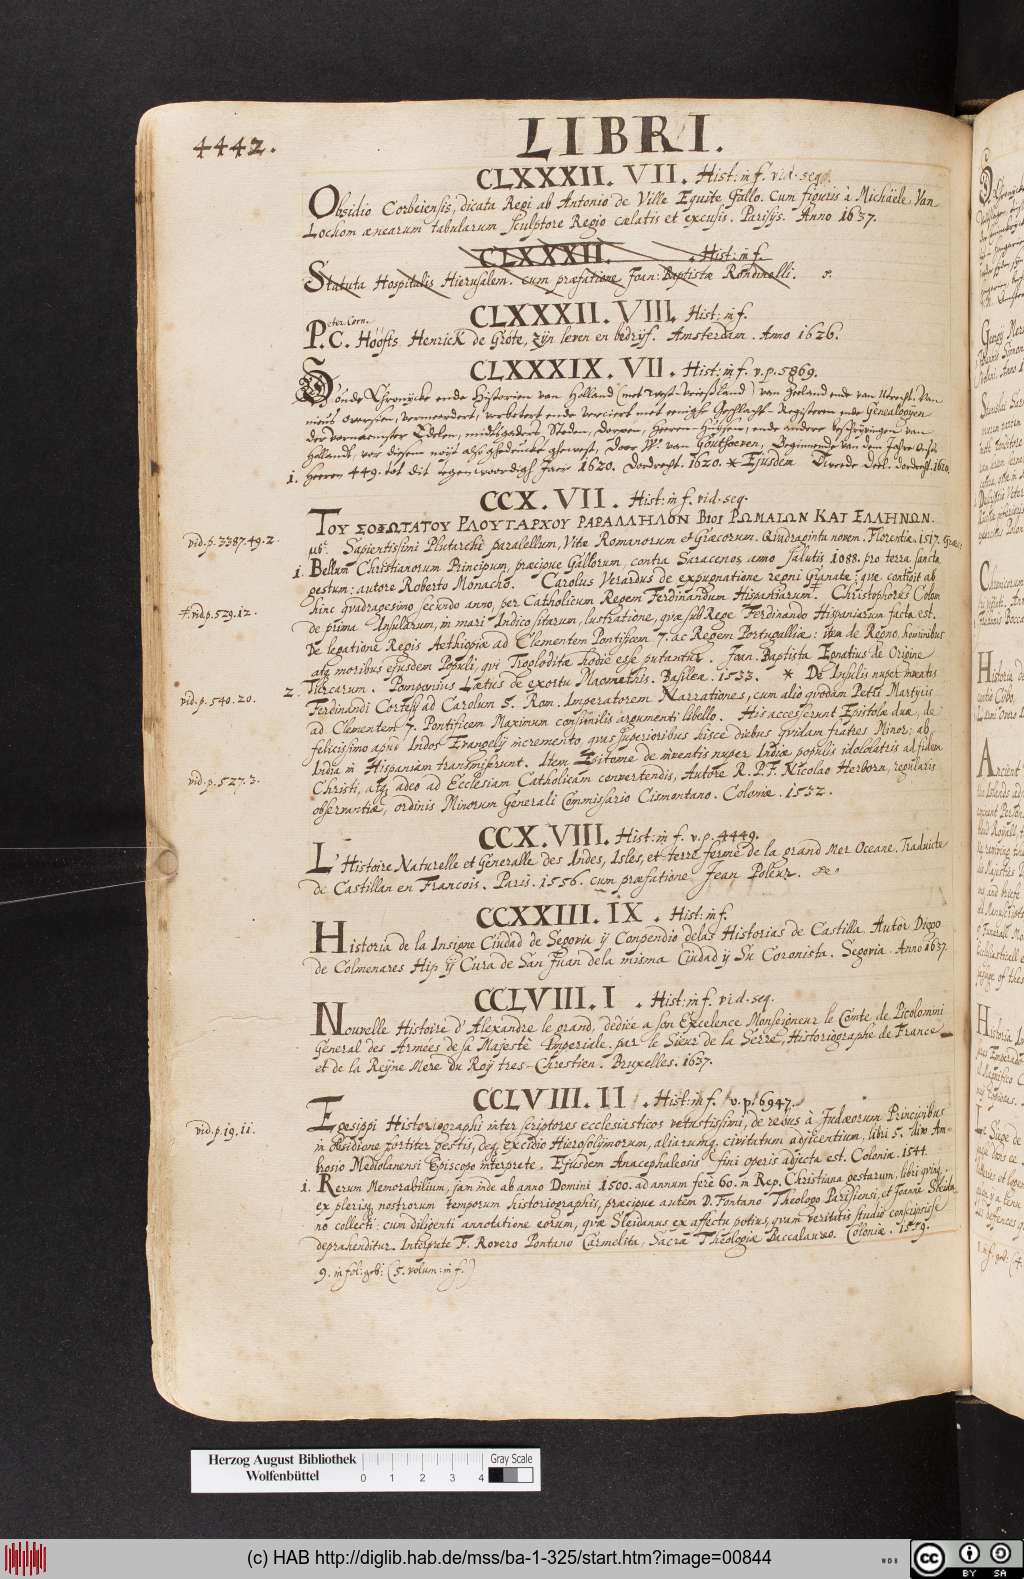 4442.
LIBRI.
CLXXXII. VII. Hist: in f. vid. seq.
Obsidio Corbeiensis, dicata Regi ab Antonio de Ville Equite Gallo. Cum figuris à Michäele Van
Lochom ænearum tabularum sculptore Regio cælatis et excusis. Parisijs. Anno 1637.
CLXXXII. Hist: in f.
Statuta Hospitalis Hierusalem. cum præfatione Joan: Baptistæ Rondinelli.
CLXXXII. VIII. Hist: in f.
Peter Corn.
P. C. Hoofts Henrick de Gröte, zijn leven en bedrijf. Amsterdam. Anno 1626.
CLXXXIX. VII. Hist: in f. v. p. 5869.
D' oude Chronijcke ende Historien van Holland (met West-Vriesland) van Zeeland ende van Utrecht. Van
nieus oversien, vermeerdert, verbetert ende verciert met eenighe Geslacht-Registeren ende Genealogijen
der voornaemster Edelen, mitsgaders Steden, Dorpen, Heeren-Huysen, ende andere beschrijvingen van
Hollandt, voor desen noijt alsoo ghedruckt gheweest, Door W. van Gouthoeven, Beginnende van den Jahre
1. Heeren 449. tot dit tegenwoordigh Jaer 1620. Dordrecht. 1620. * Ejusdem Tweede Deel. Dordrecht. 1620.
CCX. VII. Hist: in f. vid. seq.
ΤΟΥ ΣΟΦΩΤΑΤΟΥ ΡΛΟΥΤΑΡΧΟΥ ΡΑΡΑΛΛΗΛΟΝ ΒΙΟΙ ΡΩΜΑΙΩΝ ΚΑΤ ΕΛΛΗΝΩΝ.
vid. p. 3387. 49. 2
μθ. Sapientissimi Plutarchi paralellum, Vitæ Romanorum et Græcorum. Quadraginta novem. Florentiæ. 1517. Græcè.
1. Bellum Christianorum Principum, præcipue Gallorum, contra Saracenos, anno salutis 1088. pro terra sancta
gestum: autore Roberto Monacho. Carolus Verardus de expugnatione regni Granatæ: quæ contigit ab
+ vid. p. 529. 12.
hinc quadragesimo secundo anno, per Catholicum Regem Ferdinandum Hispaniarum. Christophorus Colom
de prima Insularum, in mari Indico sitarum, lustratione, quæ sub Rege Ferdinando Hispaniarum facta est.
De legatione Regis Aethiopiæ ad Clementem Pontificem 7. ac Regem Portugalliæ: item de Regno, hominibus
atq moribus ejusdem Populi, qui Troglodita hodie esse putantur. Joan. Baptista Egnatius de Origine
2. Turcarum. Pomponius Lætus de exortu Maomethis. Basileæ. 1533. * De Insulis nuper inventis
vid. p. 540. 20.
Ferdinandi Cortesij ad Carolum 5. Rom. Imperatorem Narrationes, cum alio quodam Petri Martyris
ad Clementem 7. Pontificem Maximum consimilis argumenti libello. His accesserunt Epistolæ duæ, de
felicissimo apud Indos Evangelij incremento, quas superioribus hisce diebus quidam fratres Minor: ab
India in Hispaniam transmiserunt. Item Epitome de inventis nuper Indiæ populis idololatris ad fidem
vid. p. 527. 3.
Christi, atq adeo ad Ecclesiam Catholicam convertendis, Autore R. P. F. Nicolao Herborn, regularis
observantiæ, ordinis Minorum Generali Commissario Cismontano. Coloniæ. 1532.
CCX. VIII. Hist: in f. v. p. 4449.
L' Histoire Naturelle et Generalle des Indes, Isles, et terre ferme de la grand Mer Oceane. Traduicte
de Castillan en Francois. Paris. 1556. cum præfatione Jean Poleur.
CCXXIII. IX. Hist: in f.
Historia de la Insigne Ciudad de Segovia ÿ Conpendio delas Historias de Castilla. Autor Diego
de Colmenares Hijo ÿ Cura de San Juan dela misma Ciudad ÿ Su Coronista. Segovia. Anno 1637.
CCLVIII. I. Hist: in f. vid. seq.
Nouvelle Histoire d' Alexandre le grand, dediée a son Excelence Monseigneur le Comte de Picolomini
General des Armées de sa Majestè Imperiale. par le Sieur de la Serre, Historiographe de France
et de la Reÿne Mere du Roÿ tres-Chrestien. Bruxelles. 1637.
CCLVIII. II. Hist: in f. v. p. 6947.
vid. p. 19. 11.
Egesippi Historiographi inter scriptores ecclesiasticos vetustissimi, de rebus à Judæorum Principibus
in obsidione fortiter gestis, deq excidio Hierosolymorum, aliarumq civitatum adjacentium, libri 5. divo Am-
brosio Mediolanensi Episcopo interprete. Ejusdem Anacephaleosis fini operis adjecta est. Coloniæ. 1544.
1. Rerum Memorabilium, jam inde ab anno Domini 1500. ad annum fere 60. in Rep. Christiana gestarum, libri quinq
ex plerisq nostrorum temporum historiographis, præcipue autem D. Fontano Theologo Parisiensi, et Joanne Sleida-
no collecti: cum diligenti annotatione eorum, quæ Sleidanus ex affectu potius, quam veritatis studio conscripsisse
deprehenditur. Interprete F. Rovero Pontano Carmelita, Sacræ Theologiæ Baccalaureo. Coloniæ. 1559.
9. in fol: geb: (5. volum: in f.)
Herzog August Bibliothek
Wolfenbüttel
0 1 2 3 4
Gray Scale
(c) HAB http://diglib.hab.de/mss/ba-1-325/start.htm?image=00844
WDB
cc BY SA